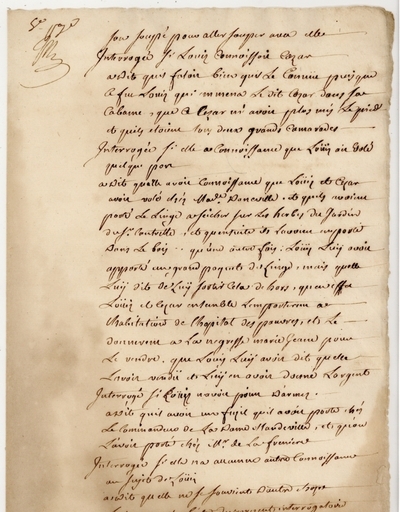 son soupé pour aller souper avec elle
Interrogée si Louis connoissoit Cezar
a dit que faloit bien que le connue puisque
ce fut Louis qui mmena le dit Cezar dans sa
Cabanne, que Cezar ni avoit plus mis le pied
et quils etoient tous deux grands camarades
Interrogée si elle a connoissance que Loüis ait volé
quelque part
a dit quelle avoit connoissance que Loüis et Cezar
avoit volé chez Mad.e
porté le Linge a secher sur les herbes du Jardin
du Sr. et quensuite ils lavoient emporté
dans le bois qu'une autre fois Loüis luy avoit
apporté un grand paquets de Linge, mais quelle
luy dit de luy sortir cela dehors, que en effet
Loüis et Cezar ensemble lemporterent a
lhabitation de lhopital des pauvres, et le
donnerent a la negresse marie Jeanne pour
le vendre, que Louis luy avoit dit quelle
lavoit vendu et luy en avoit donné Largent
Interrogé si Loüis navoit point Darmes
a dit quil avoit un fuzil quil avoit porté chez
le Commandeur de La Dame et quon
lavoit porté chez Mr. de la freniere
Interrogée si elle na aucunne autre Connoissance
au sujet de Loüis
a dit quelle ne se souvient Dautre chose
interrogatoire